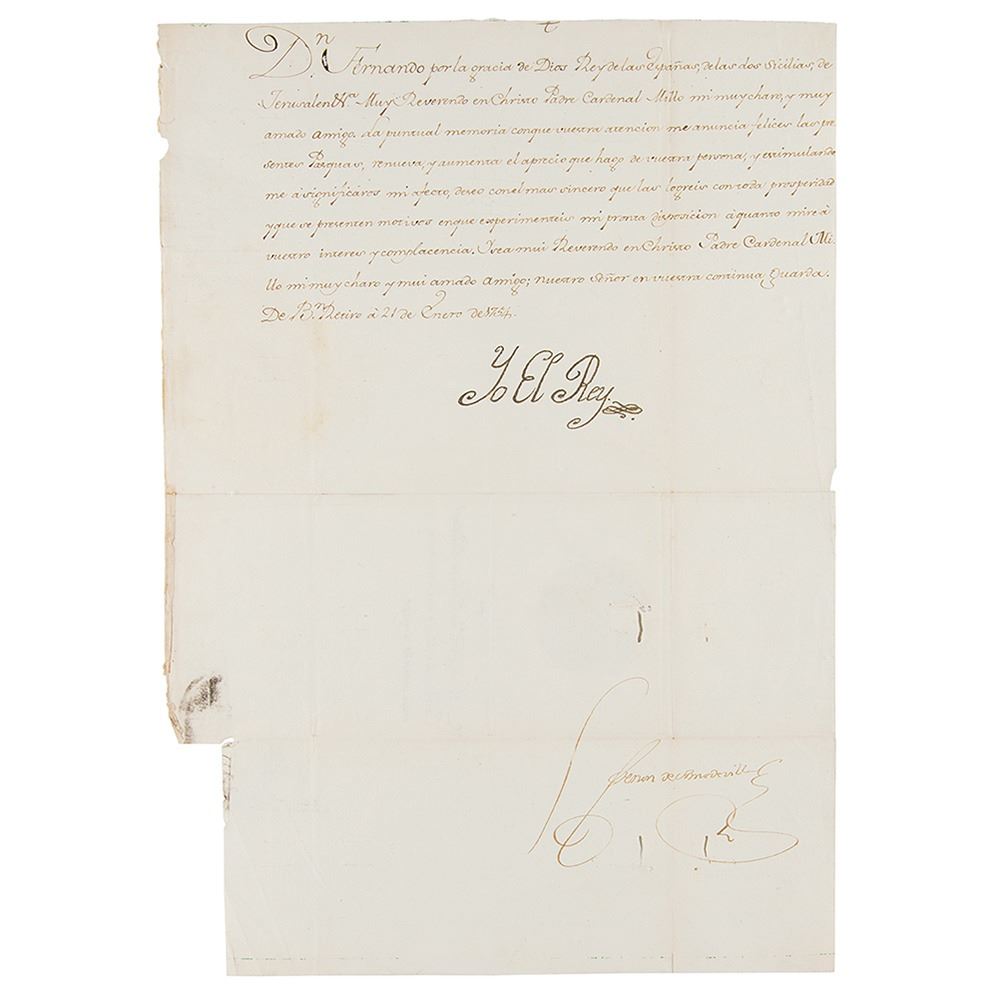 Dn. Fernando por la gracia de Dios Rey de las Españas, de las dos Sicilias, de
Jerusalen &a. Muy Reverendo en Christo Padre Cardenal Millo mi muy charo, y muy
amado amigo. La puntual memoria conque vuestra atencion me anuncia felices las pre
sentes Pasquas, renueva, y aumenta el aprecio que hago de vuestra persona, y estimulando
me à significaros mi afecto, deseo con el mas sincero que las logreis con toda prosperidad
y que se presenten motivos en que experimenteis mi pronta disposicion à quanto mire à
vuestro interes y complacencia. Y sea mui Reverendo en Christo Padre Cardenal Mi-
llo mi muy charo y mui amado Amigo; nuestro Señor en vuestra continua Guarda.
De Bn. Retiro à 21 de Enero de 1754.
Yo El Rey
Zenon de Somodevilla